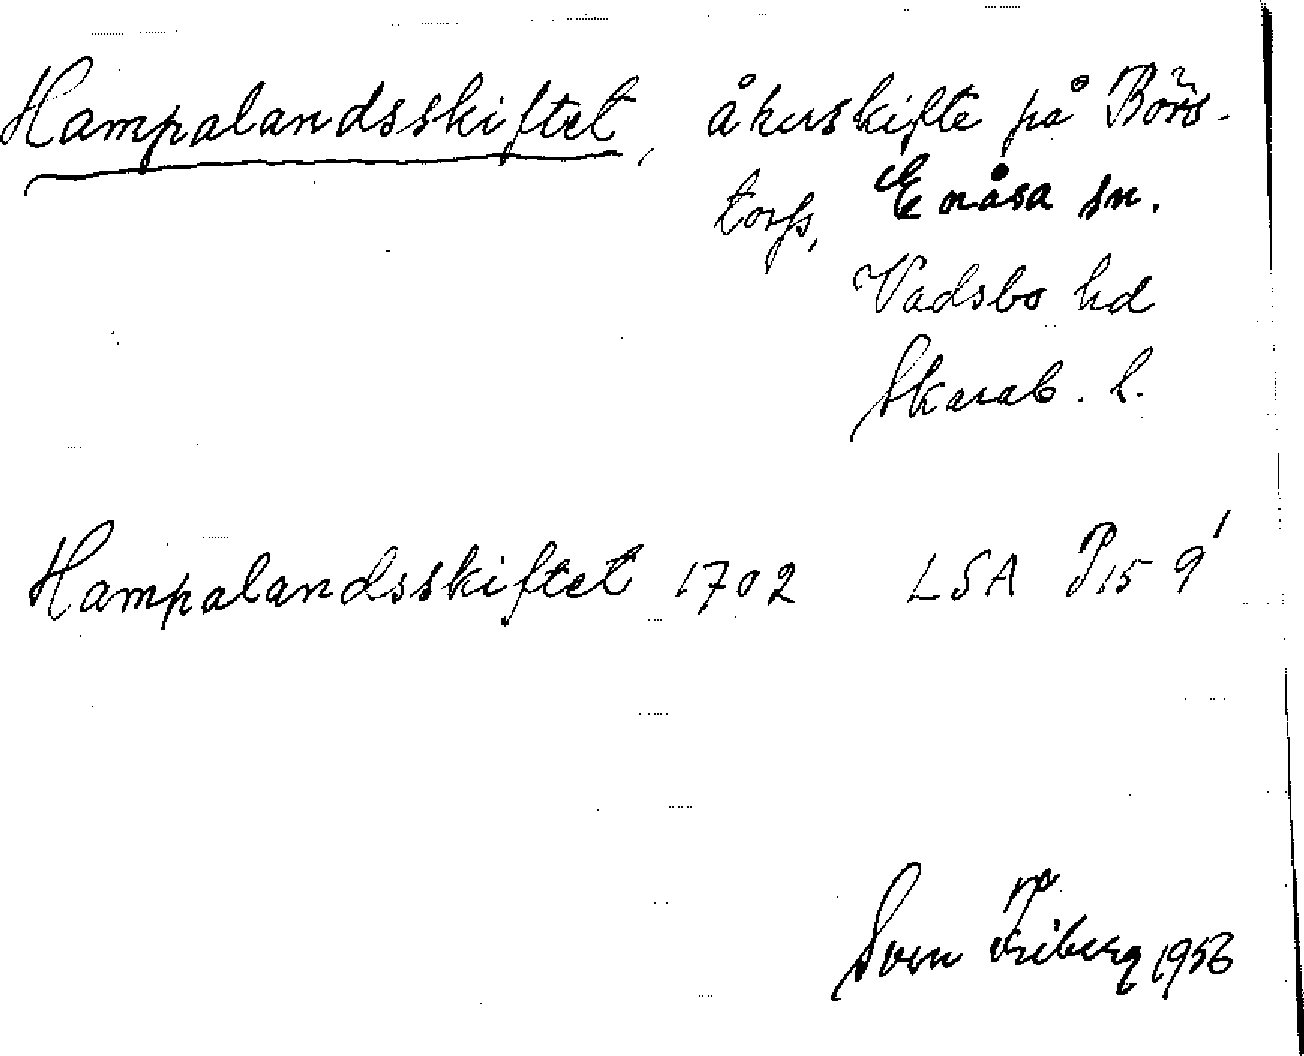 Hampalandsskiftet, åkerskifte på Börs-
torp, Enåsa sn.
Vadsbo hd
Skarab. l.
Hampalandsskiftet 1702 LSA P15 9¹
Sven Friberg 1956